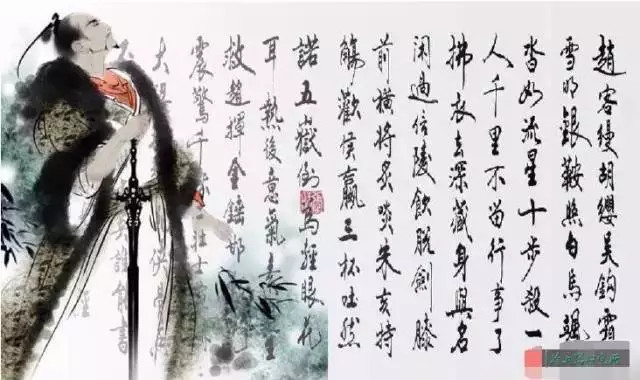 趙客縵胡纓吳鉤霜
雪明銀鞍照白馬颯
沓如流星十步殺一
人千里不留行事了
拂衣去深藏身與名
閑過信陵飲脫劍膝
前橫將炙啖朱亥持
觴歡侯嬴三杯吐然
諾五嶽倒為輕眼花
耳熱後意氣素生
救趙揮金錘邯
震驚千秋二壯士
大俠骨
誰能書
經